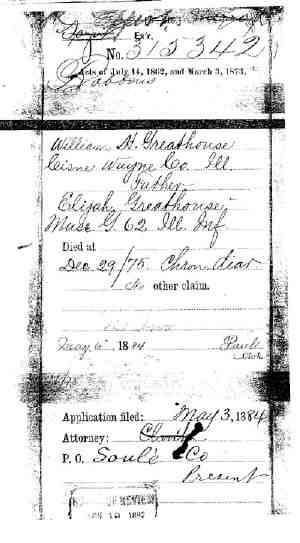 No. 315342
Acts of July 14, 1862, and March 3, 1873.
William H. Greathouse
Cisne Wayne Co. Ill.
Father
Elijah Greathouse
Musc G 62 Ill. Inf
Died at
Dec 29/75 Chron. diar.
No other claim.
1884
Clerk
Application filed: May 3, 1884
Attorney:
P. O. Soulé & Co
Present